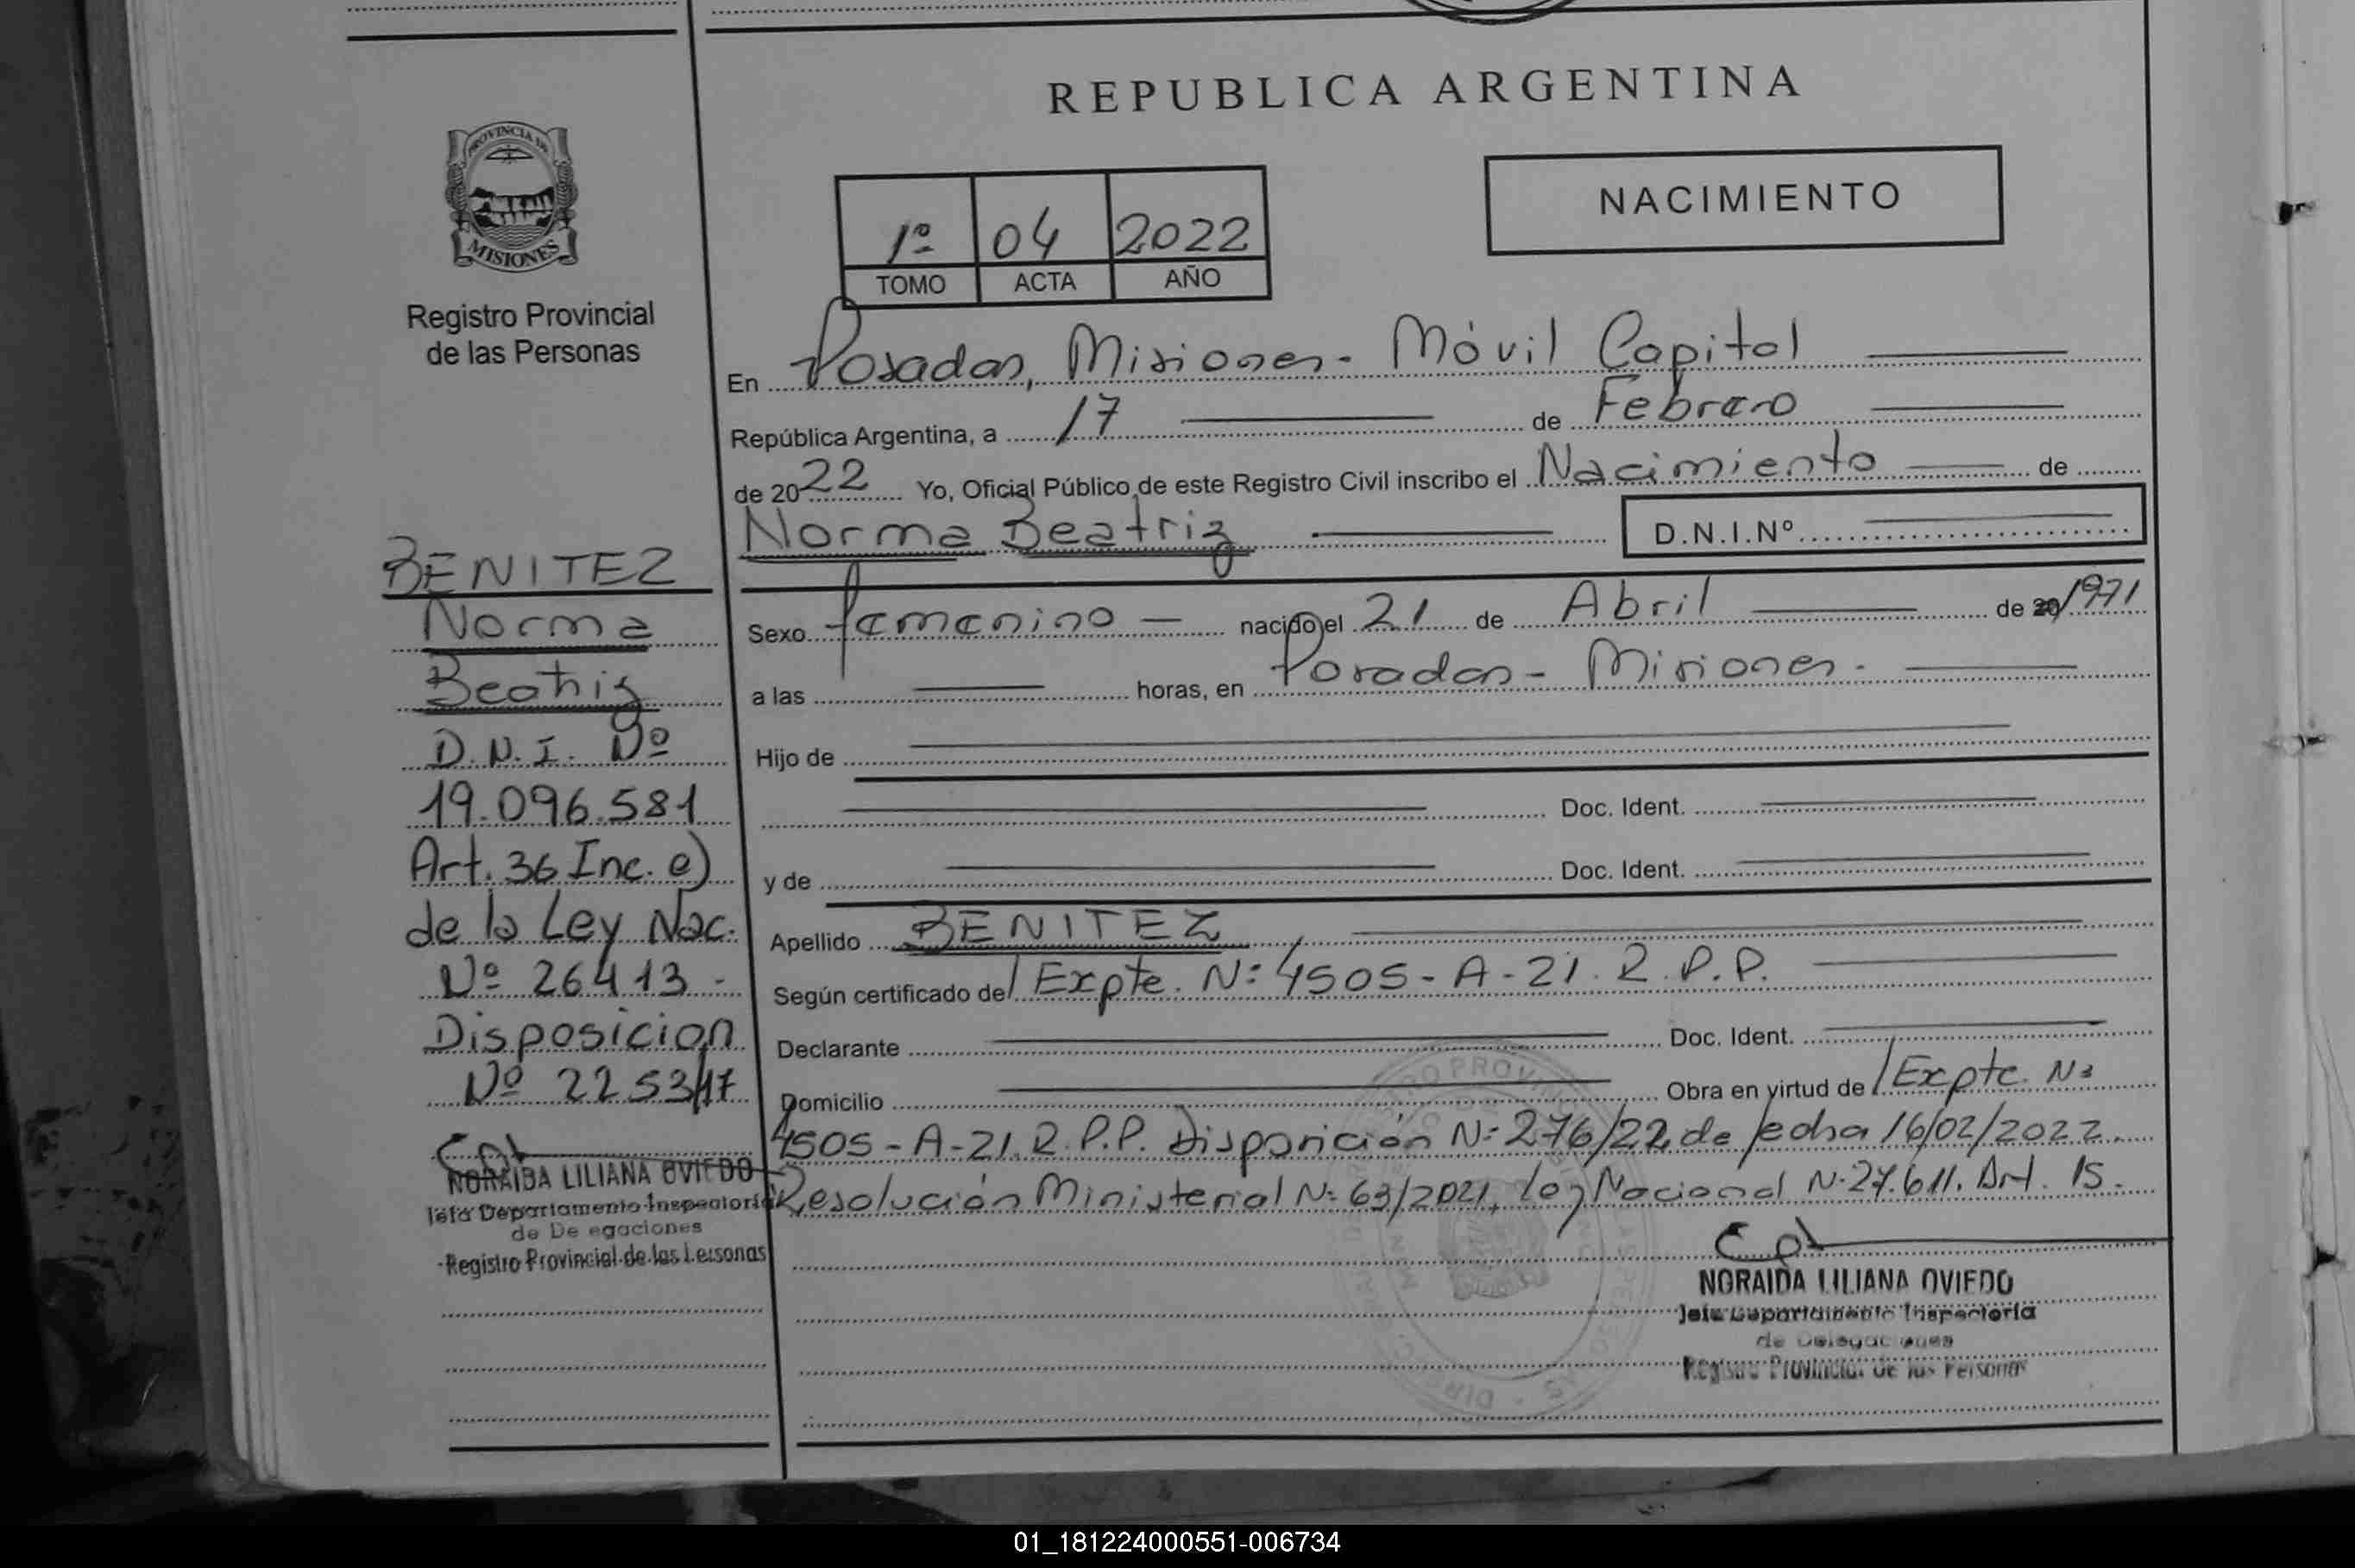 REPUBLICA ARGENTINA
PROVINCIA DE
MISIONES
Registro Provincial
de las Personas
NACIMIENTO
1º 04 2022
TOMO ACTA AÑO
En Posadas, Misiones - Móvil Capital
República Argentina, a 17 de Febrero
de 2022 Yo, Oficial Público de este Registro Civil inscribo el Nacimiento de
Norma Beatriz D.N.I.Nº
Sexo femenino - nacido el 21 de Abril de 20/1971
a las horas, en Posadas - Misiones -
Hijo de
Doc. Ident.
y de Doc. Ident.
Apellido BENITEZ
Según certificado del Expte. Nº 4505-A-21. R.P.P.
Declarante Doc. Ident.
Domicilio Obra en virtud de Expte. Nº
4505-A-21. R.P.P. Disposición Nº 276/22 de fecha 16/02/2022.
Resolución Ministerial Nº 63/2021, Ley Nacional Nº 27.611. Art. 15.
NORAIDA LILIANA OVIEDO
Jefe Departamento Inspectoría
de Delegaciones
Registro Provincial de las Personas
BENITEZ
Norma
Beatriz
D.N.I. Nº
19.096.581
Art. 36 Inc. e)
de la Ley Nac.
Nº 26413 -
Disposicion
Nº 2253/17
NORAIDA LILIANA OVIEDO
Jefa Departamento Inspectoría
de Delegaciones
Registro Provincial de las Personas
01_181224000551-006734